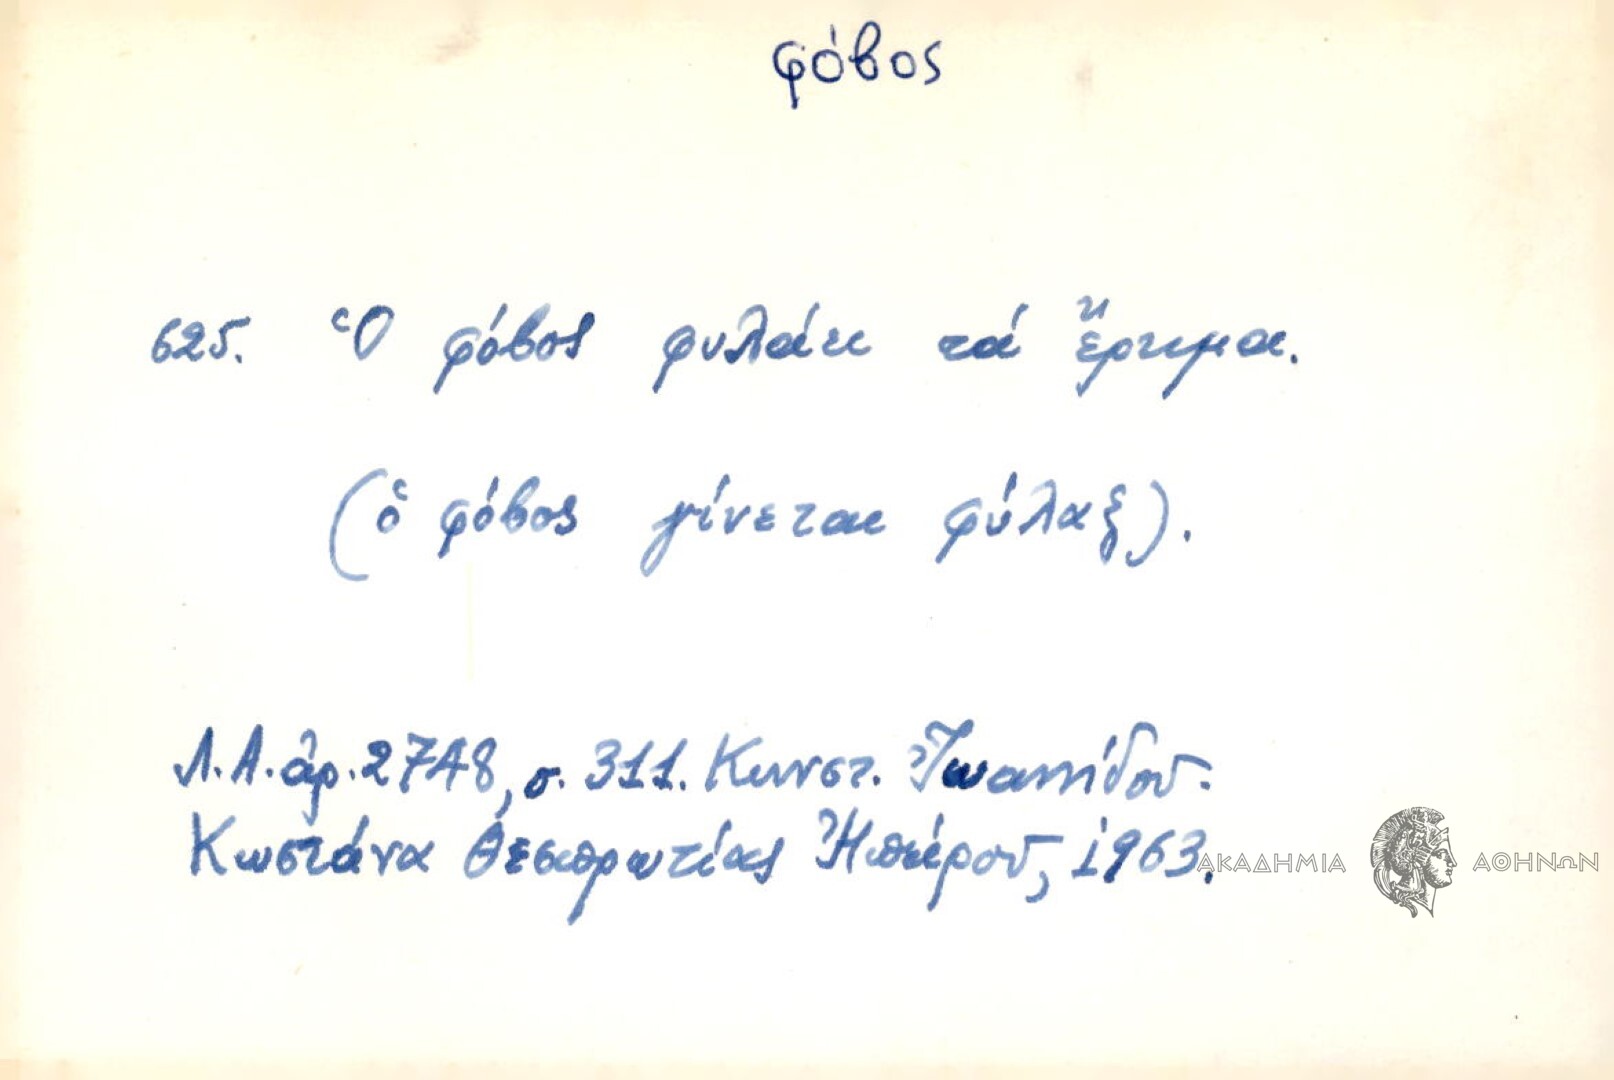 φόβος
625. Ὁ φόβος φυλάει τά ἔρημα.
(ὁ φόβος γίνεται φύλαξ).
Λ.Α. ἀρ. 2748, σ. 311. Κωνστ. Ἰωαννίδου.
Κωστάνα Θεσπρωτίας Ἠπείρου, 1963.
ΑΚΑΔΗΜΙΑ ΑΘΗΝΩΝ